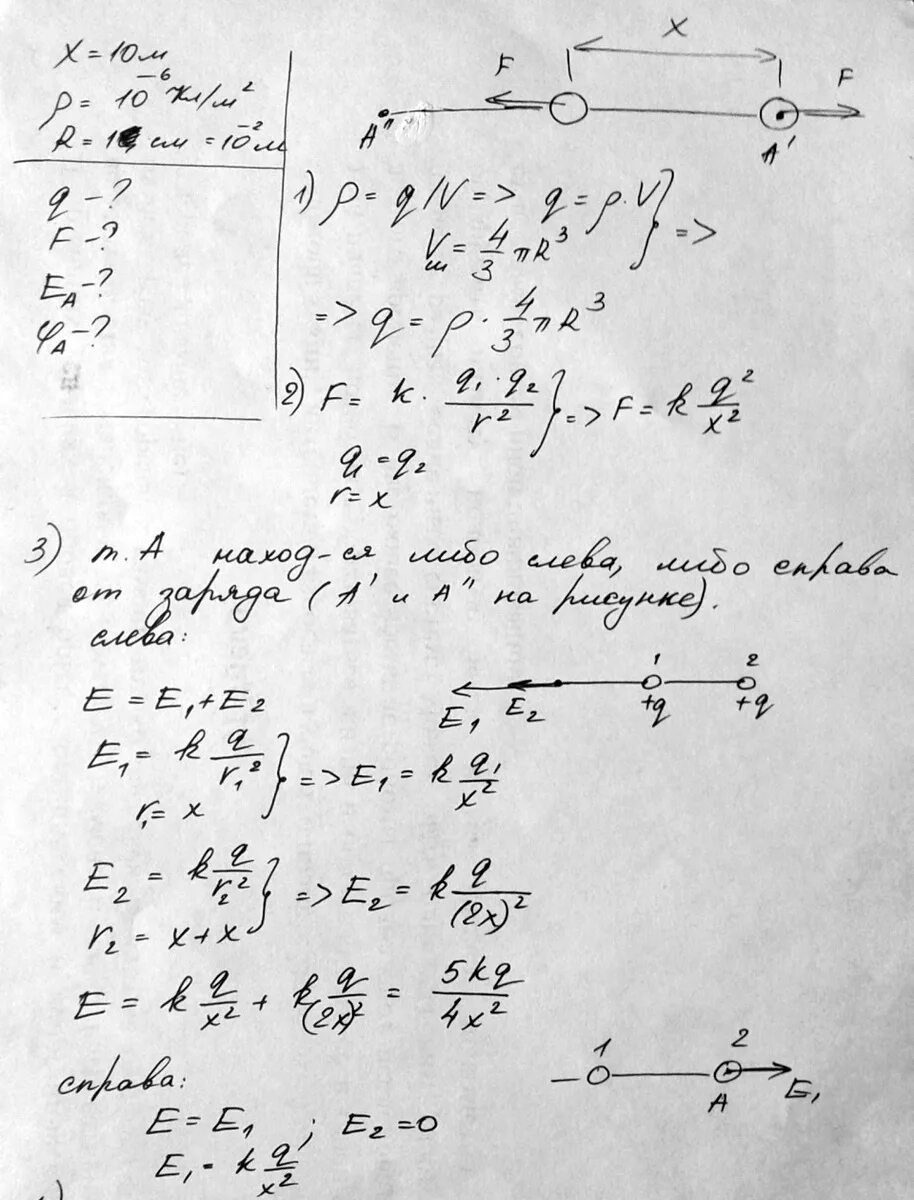 x = 10 м
ρ = 10⁻⁶ Кл/м²
R = 1 см = 10⁻² м
q - ?
F - ?
E_A - ?
φ_A - ?
x
F
F
A''
A'
1) ρ = q/V => q = ρ · V } =>
V_ш = 4/3 πR³
=> q = ρ · 4/3 πR³
2) F = k · (q₁ · q₂)/r² } => F = k q²/x²
q₁ = q₂
r = x
3) т. А наход-ся либо слева, либо справа
от заряда (A' и A'' на рисунке).
слева:
1 2
+q +q
E₁ E₂
E = E₁ + E₂
E₁ = k q/r₁² } => E₁ = k q₁/x²
r₁ = x
E₂ = k q/r₂² } => E₂ = k q/(2x)²
r₂ = x + x
E = k q/x² + k q/(2x)² = 5kq/4x²
справа:
1 2
A E₁
E = E₁ ; E₂ = 0
E₁ = k q/x²